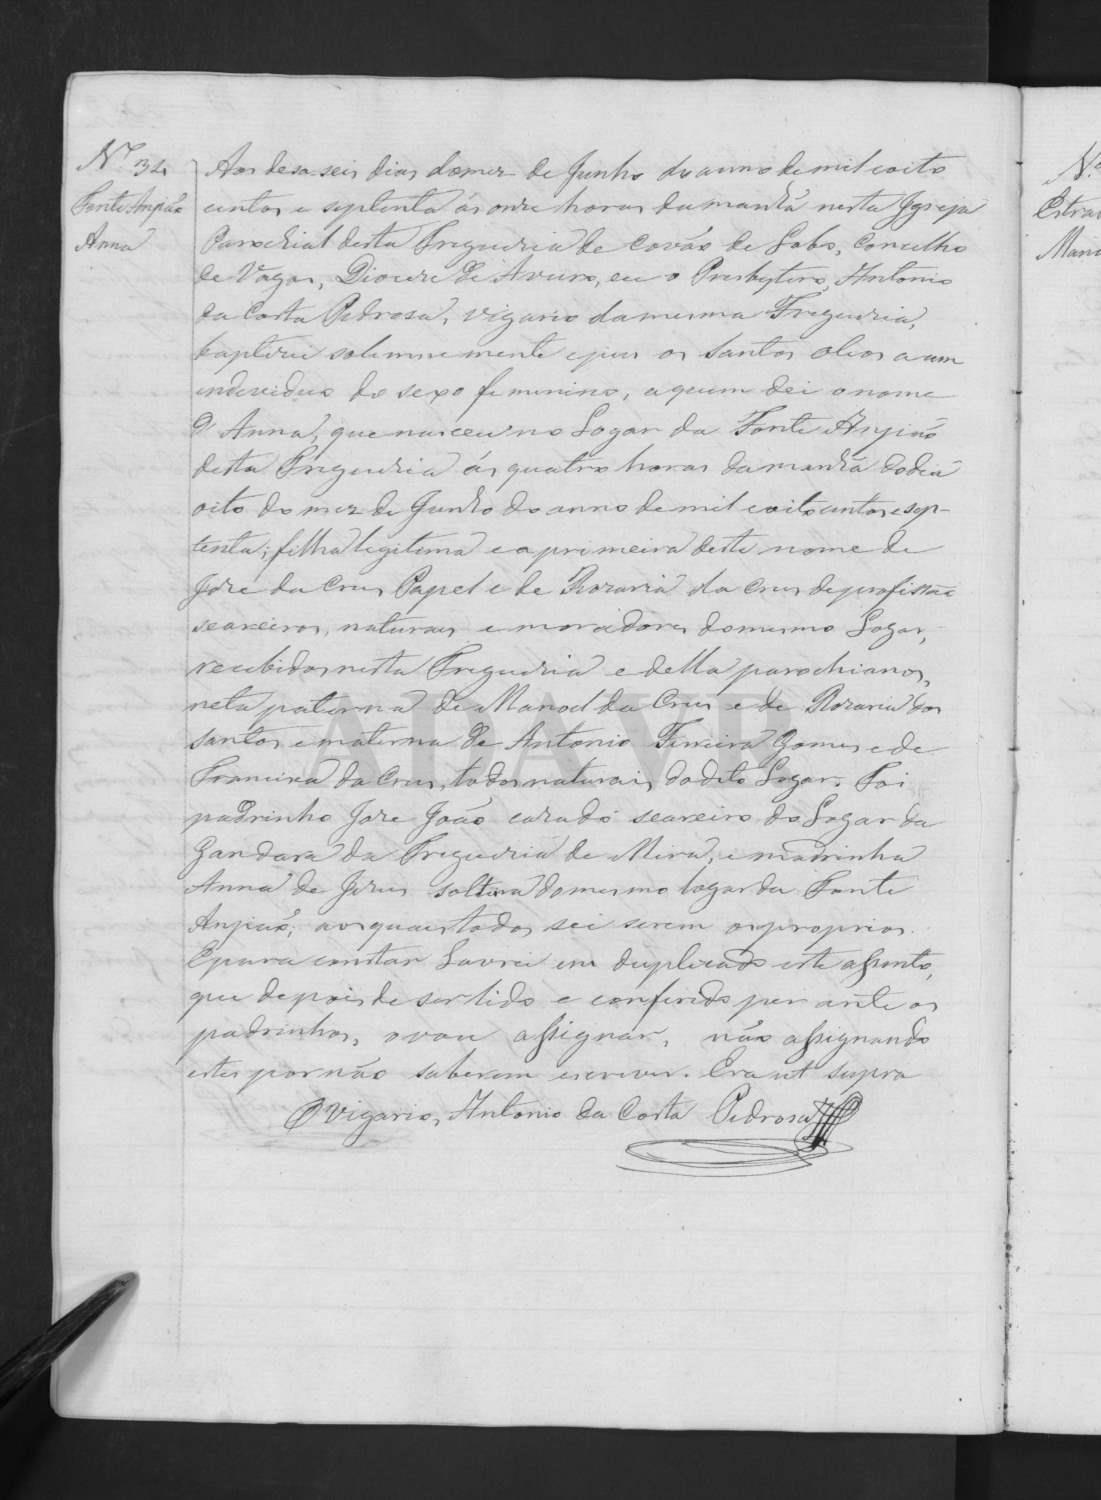 Nº 34
Fonte Anjião
Anna
Aos desaseis dias do mez de Junho do anno de mil e oito
centos e septenta ás onze horas da manhã nesta Igreja
Parochial desta Freguezia de Covão de Lobo, Concelho
de Vagos, Diocese de Aveiro, eu o Presbytero, Antonio
da Costa Pedrosa, vigario da mesma Freguezia,
baptizei solemnemente e puz os santos oleos a um
individuo do sexo feminino, a quem dei o nome
d'Anna, que nasceu no Logar da Fonte Anjião
desta Freguezia ás quatro horas da manhã do dia
oito do mez de Junho do anno de mil e oito centos e sep-
tenta; filha legitima e a primeira deste nome de
Jose da Cruz Papel e de Rozaria da Cruz de profissão
seareiros, naturaes e moradores do mesmo Logar,
recebidos nesta Freguezia e della parochianos,
neta paterna de Manoel da Cruz e de Rozaria dos
santos e materna de Antonio Ferreira Gomes e de
Francisca da Cruz, todos naturais do dito Logar. Foi
padrinho Jose João cazado seareiro do Logar da
Gandara da Freguezia de Mira, e madrinha
Anna de Jezus solteira do mesmo logar da Fonte
Anjião, aos quaes todos sei serem os proprios.
E para constar Lavrei em duplicado este assento,
que depois de ser lido e conferido perante os
padrinhos, o vou assignar, não assignando
estes por não saberem escrever. Era ut supra
O Vigario, Antonio da Costa Pedrosa
ADAVR
Nº
Estrad
Mari